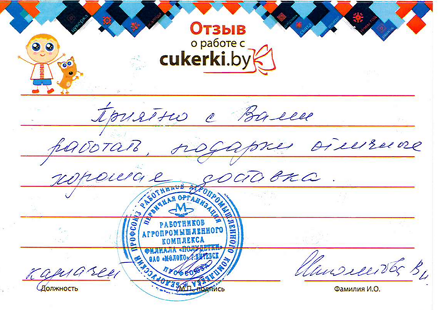 Отзыв
о работе с
cukerki.by
Приятно с Вами
работать, подарки отличные
хорошая доставка.
БЕЛОРУССКИЙ ПРОФСОЮЗ РАБОТНИКОВ АГРОПРОМЫШЛЕННОГО КОМПЛЕКСА
ПЕРВИЧНАЯ ОРГАНИЗАЦИЯ
РАБОТНИКОВ
АГРОПРОМЫШЛЕННОГО
КОМПЛЕКСА
ФИЛИАЛА
ОАО "МОЛОКО" Г.ВИТЕБСК
казначей
Должность
М.П., подпись
Фамилия И.О.